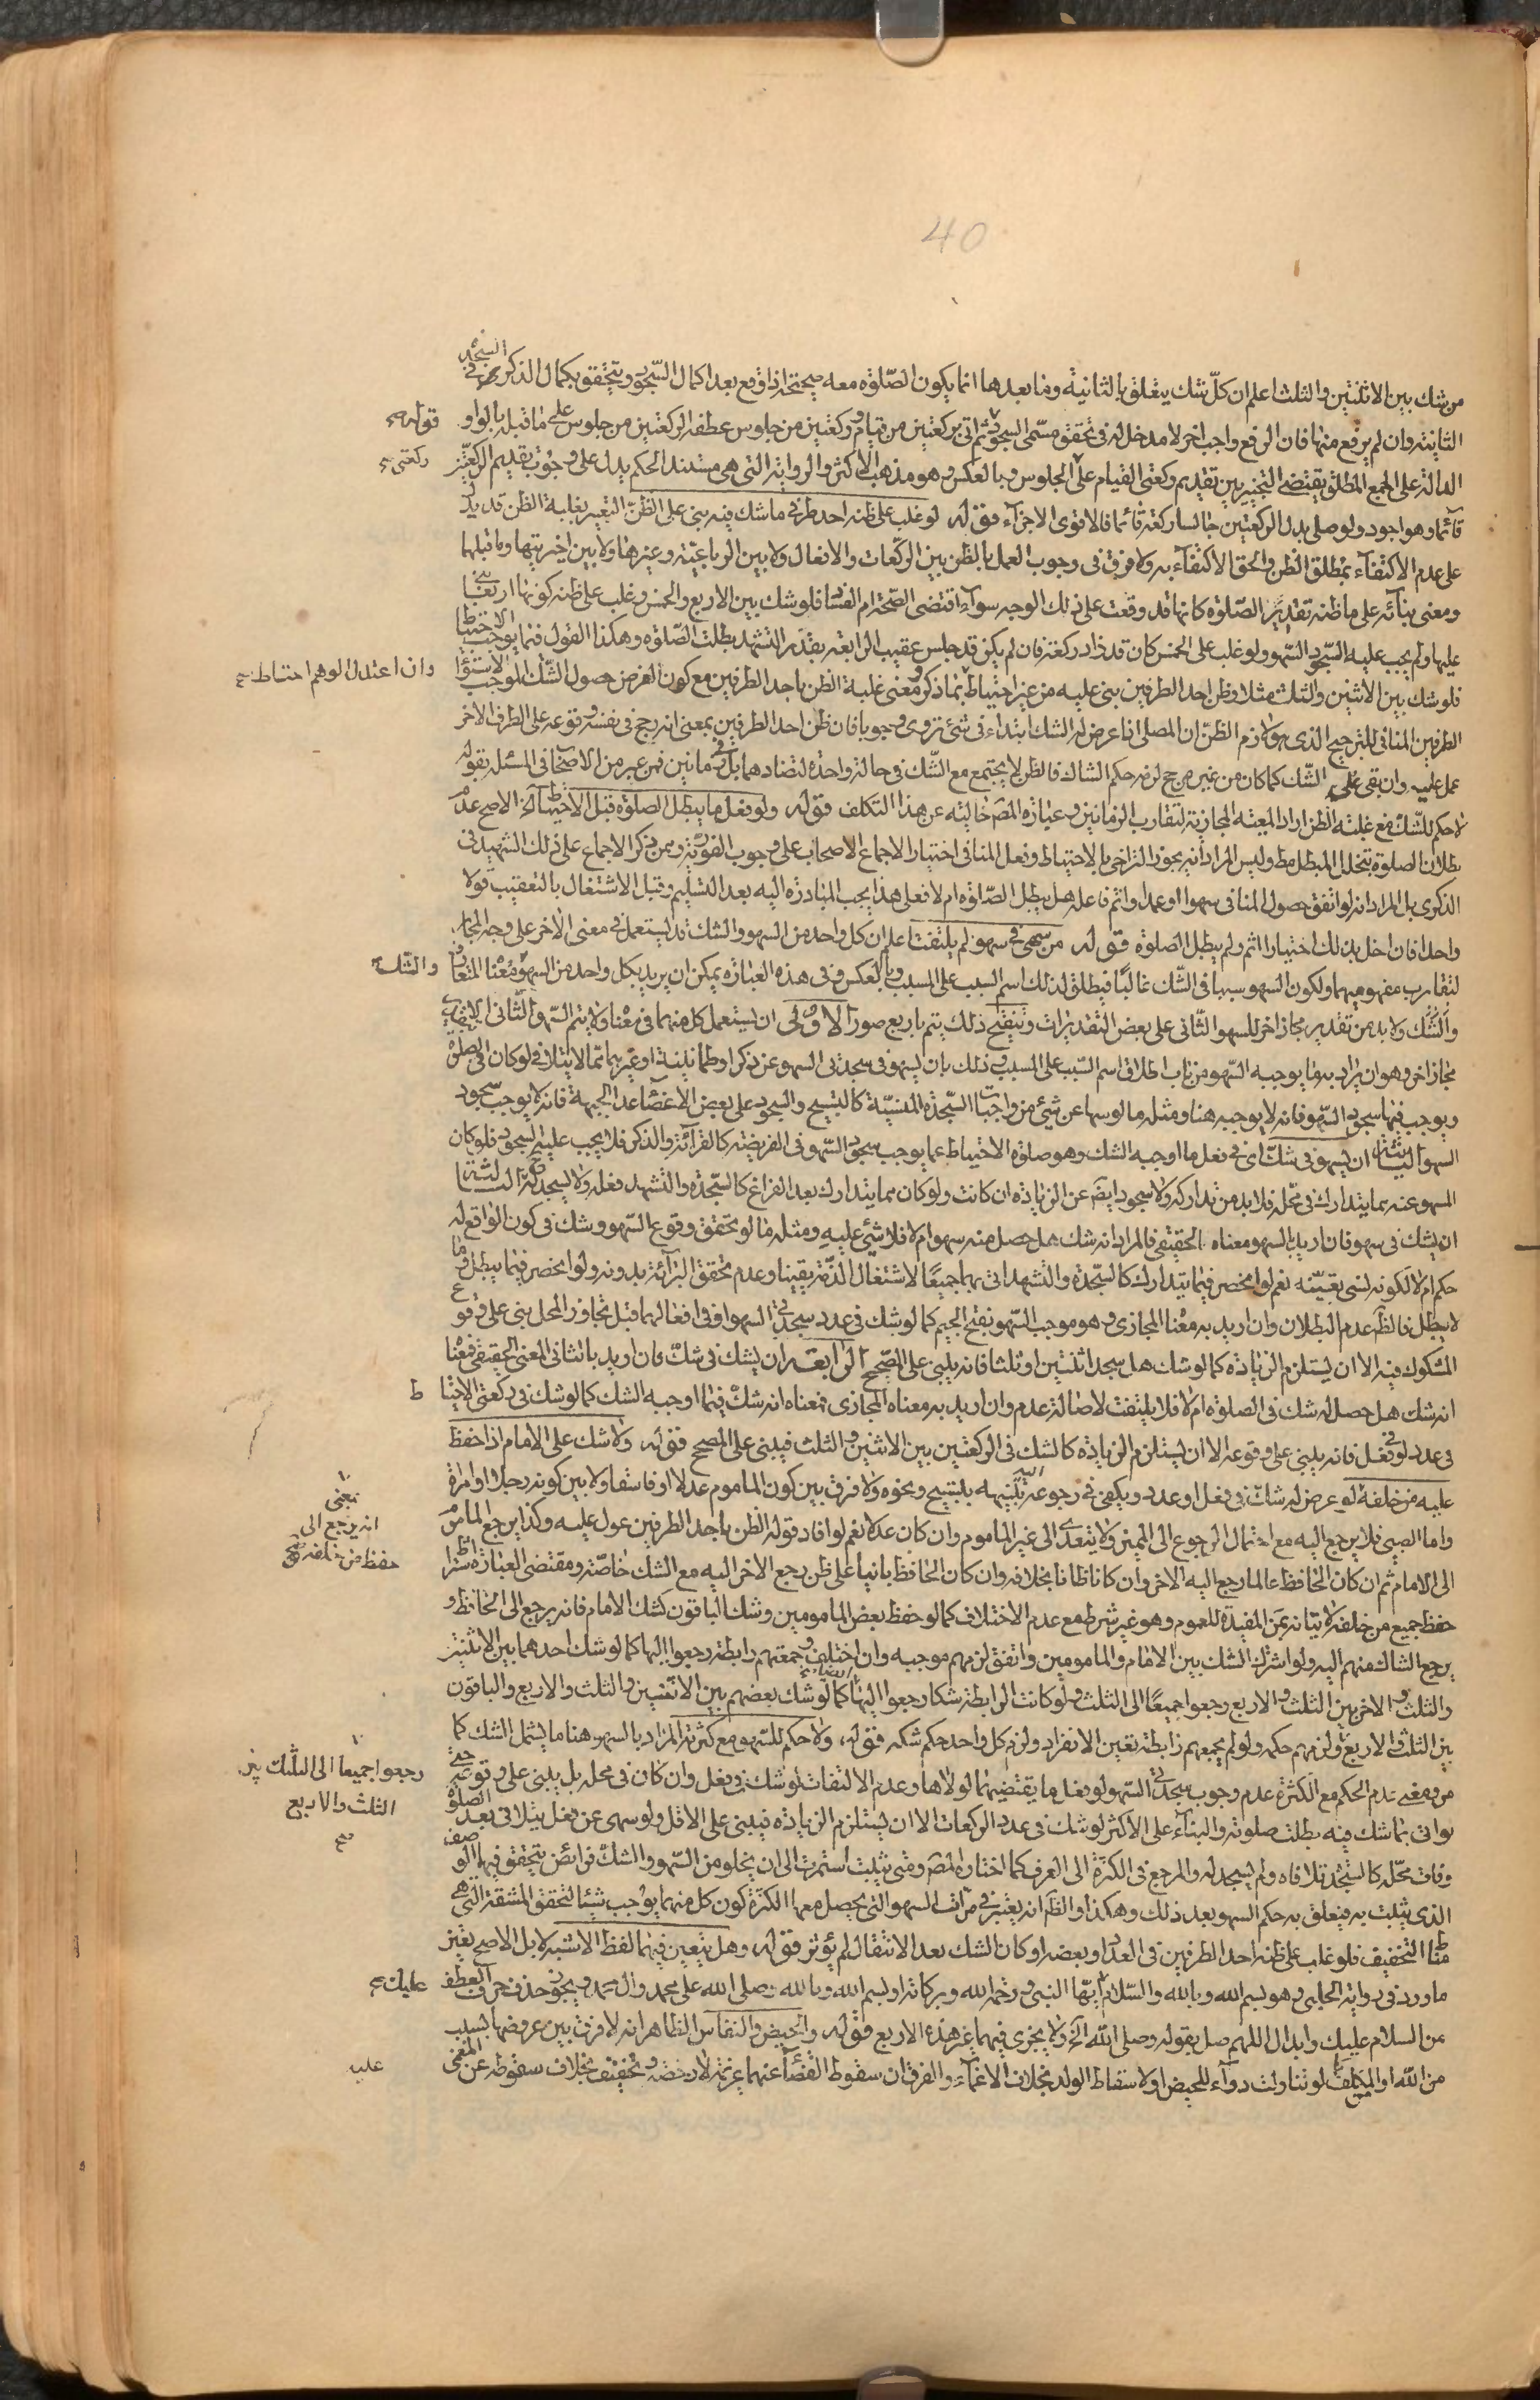 40
من شك بين الاثنتين والثلث اعلم ان كل شك يتعلق بالثانية وما بعدها انما يكون الصلوة معه صحيحة اذا وقع بعد اكمال السجود ويتحقق بكمال الذكر في السجدة
الثانية وان لم يرفع منها فان الرفع واجب اخر لا مدخل له في تحقق مسمى السجود قوله ثم اتى بركعتين من قيام وركعتين من جلوس عطفه الركعتين من جلوس على ما قبله بالواو
الدالة على الجمع المطلق يقتضى التخيير بين تقديم ركعتى القيام على ركعتى الجلوس وبالعكس وهو مذهب الاكثر والرواية التى هى مستند الحكم يدل على وجوب تقديم الركعتين
قائما وهو اجود ولو صلى بدل الركعتين جالسا ركعة قائما فالاقوى الاجزاء قوله لو غلب على ظنه احد طرفى ما شك فيه بنى على الظن التعبير بغلبة الظن قد يدل
على عدم الاكتفاء بمطلق الظن والحق الاكتفاء به ولا فرق في وجوب العمل بالظن بين الركعات والافعال ولا بين الرباعية وغيرها ولا بين اخيرتيها وما قبلهما
ومعنى بنائه على ما ظنه تقدير الصلوة كانها قد وقعت على ذلك الوجه سواء اقتضى الصحة ام الفساد فلو شك بين الاربع والخمس وغلب على ظنه كونها اربعا بنى
عليها ولم يجب عليه السجود السهو ولو غلب على الخمس كان قد زاد ركعة فان لم يكن قد جلس عقيب الرابعة بقدر التشهد بطلت الصلوة وهكذا القول فيما يوجب الاحتياط
فلو شك بين الاثنين والثلث مثلا وظن احد الطرفين بنى عليه من غير احتياط وان اعتدل الوهم احتاط بما ذكر ومعنى غلبة الظن باحد الطرفين مع كون الفرض حصول الشك الموجب لاستواء
الطرفين المنافى للترجيح الذى هو لازم الظن ان المصلى اذا عرض له الشك ابتداء في شئ تروى وجوبا فان ظن احد الطرفين بمعنى انه رجح في نفسه وقوعه على الطرف الاخر
عمل عليه وان بقى على الشك كما كان من غير مرجح لزمه حكم الشاك فالظن لا يجتمع مع الشك في حالة واحدة لتضادهما بل في زمانين فمن عبر من الاصحاب في المسئلة بقوله
لا حكم للشك مع غلبة الظن اراد المعية المجازية لتقارب الزمانين وعبارة المص خالية عن هذا التكلف قوله ولو فعل ما يبطل الصلوة قبل الاحتياط الخ الاصح عدم
بطلان الصلوة بتخلل المبطل مط وليس المراد انه يجوز التراخى بالاحتياط وفعل المنافى اختيارا لاجماع الاصحاب على وجوب الفورية وممن ذكر الاجماع على ذلك الشهيد في
الذكرى بل المراد انه لو اتفق حصول المنافى سهوا او عمدا واثم فاعله هل يبطل الصلوة ام لا فعلى هذا يجب المبادرة اليه بعد التسليم وقبل الاشتغال بالتعقيب قولا
واحدا فان اخل بذلك اختيارا اثم ولم يبطل الصلوة قوله من سهى في سهو لم يلتفت اعلم ان كل واحد من السهو والشك قد يستعمل في معنى الاخر على وجه المجاز
لتقارب مفهوميهما ولكون السهو سببا في الشك غالبا فيطلق لذلك اسم السبب على المسبب وبالعكس وفى هذه العبارة يمكن ان يريد بكل واحد من السهو والشك معناه المتعارف
والشك ولا بد من تقدير مجاز اخر للسهو الثانى على بعض التقديرات وتنقيح ذلك يتم باربع صور الاولى ان يستعمل كل منهما في معناه ولا يتم السهو الثانى الا بتقدير
مجاز اخر وهو ان يراد به ما يوجبه السهو من باب اطلاق اسم السبب على المسبب وذلك بان يسهو في سجدتى السهو عن ذكر او طمانينة او غيرهما مما لا يتلافى لو كان في الصلوة
ويوجب فيها سجود السهو فانه لا يوجبه هنا ومثله ما لو سها عن شئ من واجبات السجدة المنسية كالتسبيح والسجود على بعض الاعضاء عدا الجبهة فانه لا يوجب سجود
السهو الثانية ان يسهو في شك اى في فعل ما اوجبه الشك وهو صلوة الاحتياط عما يوجب سجود السهو في الفريضة كالقرائة والذكر فلا يجب عليه السجود فلو كان
المسهو عنه مما يتدارك في محله فلا بد من تداركه ولا سجود ايضا عن الزيادة ان كانت ولو كان مما يتدارك بعد الفراغ كالسجدة والتشهد فعله ولا يسجد له الثالثة
ان يشك في سهو فان اريد بالسهو معناه الحقيقى فالمراد انه شك هل حصل منه سهو ام لا فلا شئ عليه ومثله ما لو تحقق وقوع السهو وشك في كون الواقع له
حكم ام لا لكونه نسى تعينه نعم لو انحصر فيما يتدارك كالسجدة والتشهد اتى بهما جميعا لاشتغال الذمة يقينا وعدم تحقق البرائة بدونه ولو انحصر فيما يبطل وما
لا يبطل فالظاهر عدم البطلان وان اريد به معناه المجازى وهو موجب السهو بفتح الجيم كما لو شك في عدد سجدتى السهو او في افعالهما قبل تجاوز المحل بنى على وقوع
المشكوك فيه الا ان يستلزم الزيادة كما لو شك هل سجد اثنتين او ثلثا فانه يبنى على المصحح الرابعة ان يشك في شك فان اريد بالثانى المعنى الحقيقى فمعناه
انه شك هل حصل له شك في الصلوة ام لا فلا يلتفت لاصالة عدم وان اريد به معناه المجازى فمعناه انه شك فيما اوجبه الشك كما لو شك في ركعتى الاحتياط
في عدد او فعل فانه يبنى على وقوعه الا ان يستلزم الزيادة كالشك في الركعتين بين الاثنين والثلث فيبنى على المصحح قوله ولا شك على الامام اذا حفظ
عليه من خلفه بمعنى انه يرجع الى حفظ من خلفه لو عرض له شك في فعل او عدد ويكفى في رجوعه اليه تنبيهه بتسبيح ونحوه ولا فرق بين كون الماموم عدلا او فاسقا ولا بين كونه رجلا او امراة
واما الصبى فلا يرجع اليه مع احتمال الرجوع الى المميز ولا يتعدى الى غير الماموم وان كان عدلا نعم لو افاد قوله الظن باحد الطرفين عول عليه وكذا يرجع الماموم
الى الامام ثم ان كان الحافظ عالما رجع اليه الاخر وان كانا ظانا بخلافه وان كان الحافظ بانيا على ظن رجع الاخر اليه مع الشك خاصة ومقتضى العبارة اشتراط
حفظ جميع من خلفه لاتيانه بمن المفيدة للعموم وهو غير شرط مع عدم الاختلاف كما لو حفظ بعض المامومين وشك الباقون كشك الامام فانه يرجع الى الحافظ و
يرجع الشاك منهم اليه ولو اشترك الشك بين الامام والمامومين واتفق لزمهم موجبه وان اختلف وجمعتهم رابطة رجعوا اليها كما لو شك احدهما بين الاثنتين
والثلث والاخر بين الثلث والاربع رجعوا جميعا الى الثلث ولو كانت الرابطة شكا رجعوا اليها ايضا كما لو شك بعضهم بين الاثنتين والثلث والاربع والباقون
بين الثلث والاربع ولزمهم حكمه ولو لم يجمعهم رابطة تعين الانفراد ولزم كل واحد حكم شكه قوله ولا حكم للسهو مع كثرته المراد بالسهو هنا ما يشمل الشك كما
مر ومعنى عدم الحكم مع الكثرة عدم وجوب سجدتى السهو لو فعل ما يقتضيهما لولاها وعدم الالتفات لو شك في فعل وان كان في محله بل يبنى على وقوعه حتى
لو اتى بما شك فيه بطلت صلوته والبناء على الاكثر لو شك في عدد الركعات الا ان يستلزم الزيادة فيبنى على الاقل ولو سهى عن فعل يتلافى بعد الصلوة
وفات محله كالسجدة تلافاه ولم يسجد له والمرجع في الكثرة الى العرف كما اختاره المص ومتى ثبتت استمرت الى ان يخلو من السهو والشك فرائض يتحقق فيها الوصف
الذى يثبت به فيتعلق به حكم السهو بعد ذلك وهكذا والظاهر انه يعتبر في مراتب السهو التى يحصل معها الكثرة كون كل منهما يوجب شيئا لتحقق المشقة التى هى
مناط التخفيف فلو غلب على ظنه احد الطرفين في العدد او بعضه او كان الشك بعد الانتقال لم يؤثر قوله وهل يتعين فيهما لفظ الاشبه لا بل الاصح يعتبر
ما ورد في رواية الحلبى وهو بسم الله وبالله والسلام عليك ايها النبى ورحمة الله وبركاته او بسم الله وبالله وصلى الله على محمد وال محمد ويجوز حذف حرف العطف
من السلام عليك وابدال اللهم صل بقوله وصلى الله الخ ولا يجزى فيهما غير هذه الاربع قوله والحيض والنفاس الظاهر انه لا فرق بين عروضهما بسبب
من الله او المكلف لو تناولت دواء للحيض او لاسقاط الولد بخلاف الاغماء والفرق ان سقوط القضاء عنهما عزيمة لا رخصة وتخفيف بخلاف سقوطه عن المغمى
عليه
قوله
ركعتى
وان اعتدل الوهم احتاط
والشك
ط
بمعنى
انه يرجع الى
حفظ من خلفه
رجعوا جميعا الى الشك بين
الثلث والاربع
صح
عليك